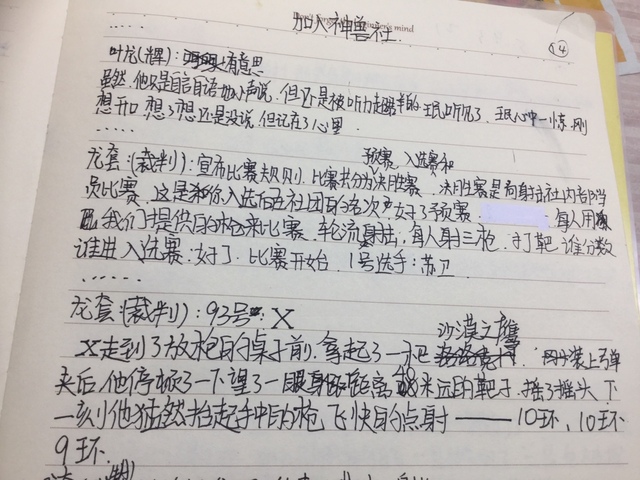 加入神兽社.
mind
14
叶龙(辉):有意思
虽然,他只是自言自语地小声说,但还是被听力超群的珉听见了,珉心中一惊,刚
想开口,想了想还是没说,但记在了心里.
.....
预赛,入选赛和
龙套:(裁判):宣布比赛规则,比赛共分为决胜赛.决胜赛是商射击社内部
员比赛.这是你入选后社团的名次好了预赛.每人用
我们提供的枪来比赛.轮流射击,每人射三枪.打靶谁分数
谁进入选赛.好了.比赛开始.1号选手:苏卫.
.....
龙套:(裁判):93号:X
沙漠之鹰
X走到了放枪的桌子前,拿起了一把装上弹
夹后,他停顿了一下望了一眼距离米远的靶子.摇了摇头下
一刻他猛然抬起手中的枪,飞快的点射——10环,10环
9环.